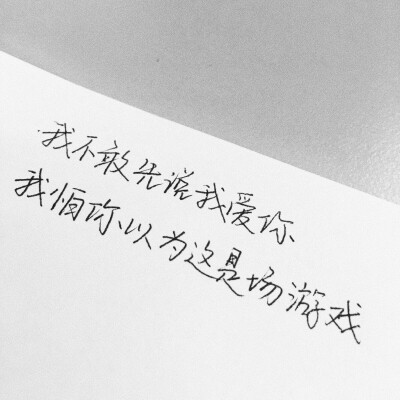 我不敢先说我爱你
我怕你以为这是场游戏